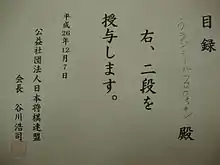 目録
殿
右、二段を
授与します。
平成26年12月7日
公益社団法人日本将棋連盟
会長 谷川浩司